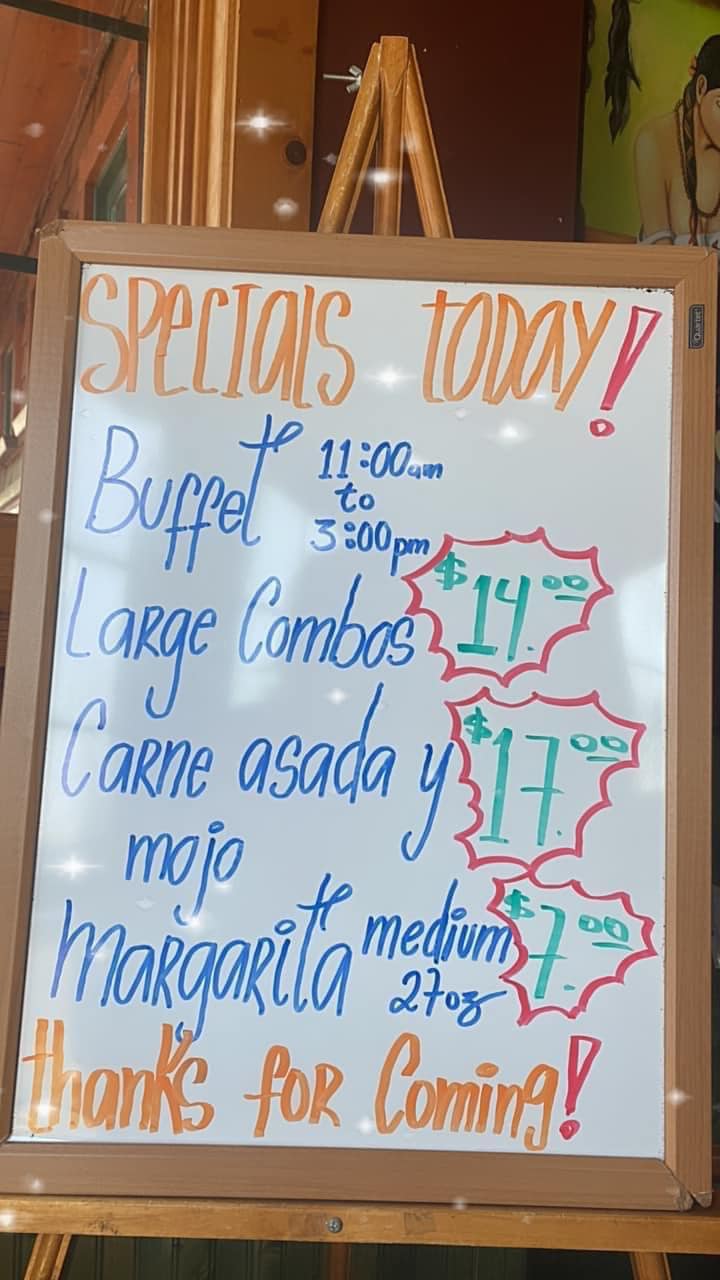 Quartet
SPECIALS TODAY!
Buffet 11:00am
to
3:00pm
Large Combos $14.00
Carne asada y $17.00
mojo
margarita medium $7.00
27oz
thank's for Coming!